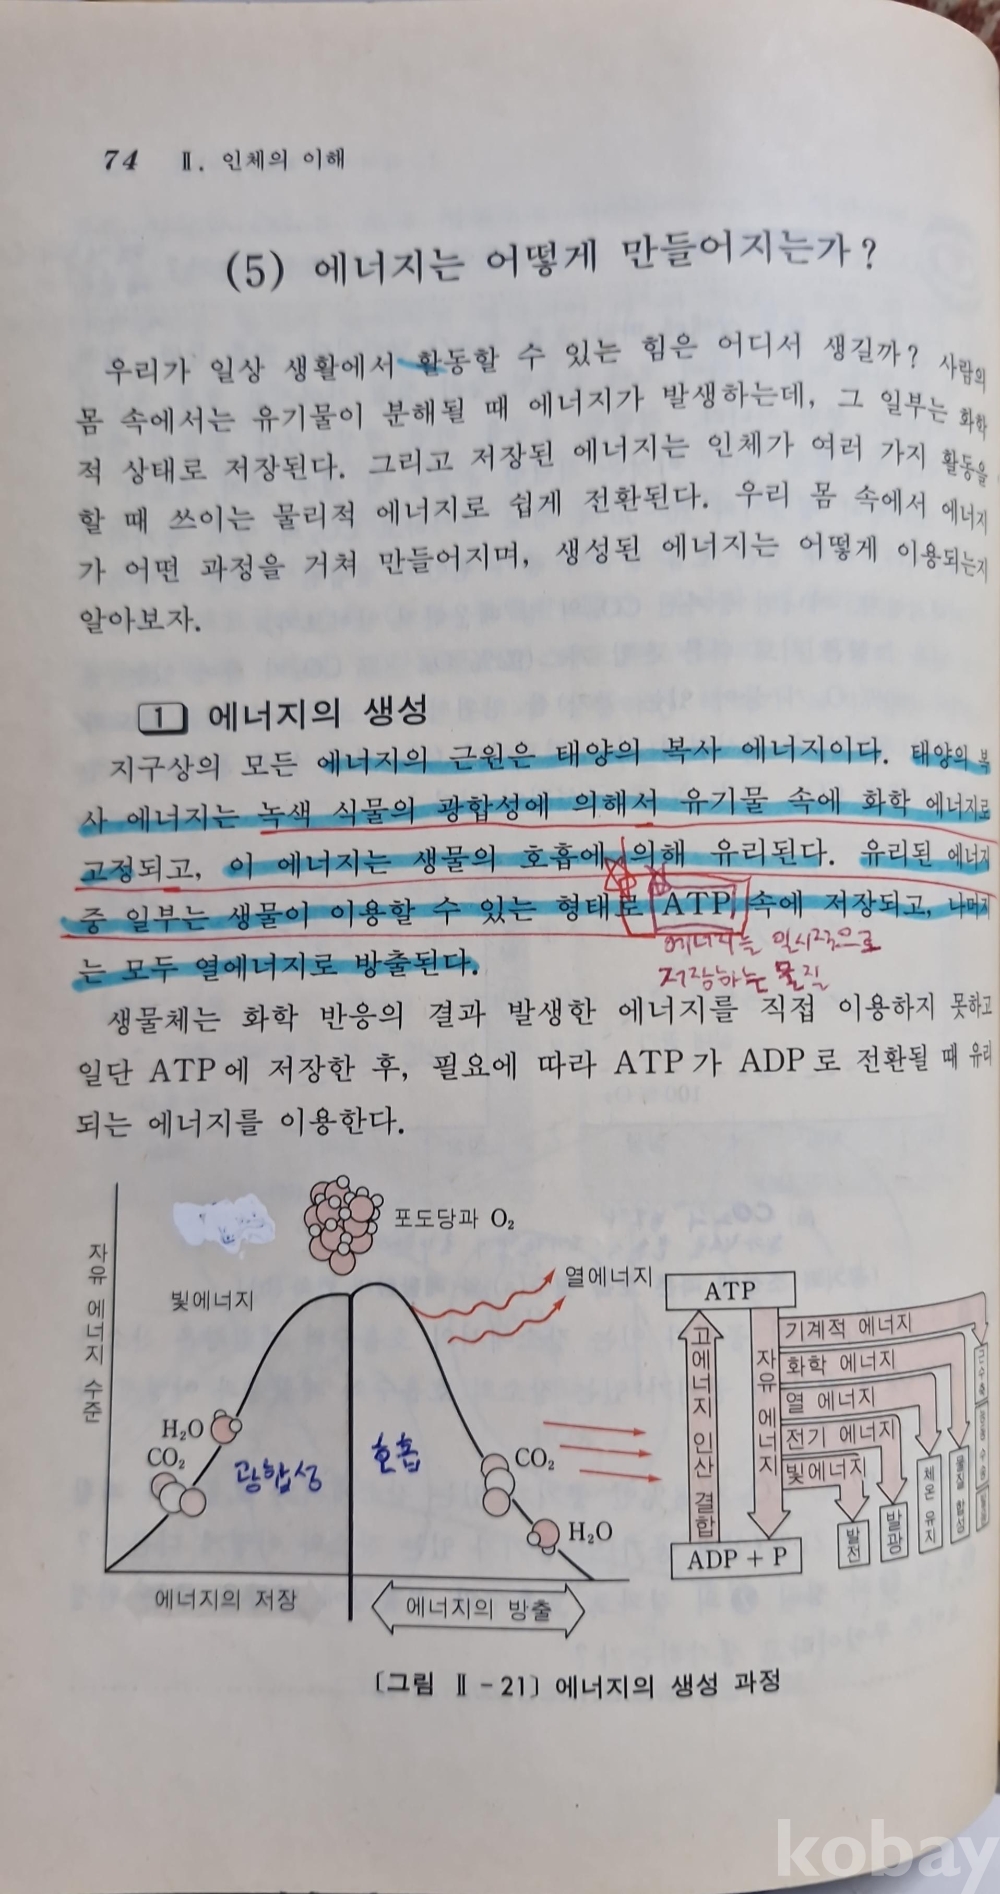 74 Ⅱ. 인체의 이해
(5) 에너지는 어떻게 만들어지는가?
우리가 일상 생활에서 활동할 수 있는 힘은 어디서 생길까? 사람의
몸 속에서는 유기물이 분해될 때 에너지가 발생하는데, 그 일부는 화학
적 상태로 저장된다. 그리고 저장된 에너지는 인체가 여러 가지 활동을
할 때 쓰이는 물리적 에너지로 쉽게 전환된다. 우리 몸 속에서 에너지
가 어떤 과정을 거쳐 만들어지며, 생성된 에너지는 어떻게 이용되는지
알아보자.
1 에너지의 생성
지구상의 모든 에너지의 근원은 태양의 복사 에너지이다. 태양의 복
사 에너지는 녹색 식물의 광합성에 의해서 유기물 속에 화학 에너지로
고정되고, 이 에너지는 생물의 호흡에 의해 유리된다. 유리된 에너지
중 일부는 생물이 이용할 수 있는 형태로 ATP 속에 저장되고, 나머지
는 모두 열에너지로 방출된다.
에너지를 일시적으로
저장하는 물질
생물체는 화학 반응의 결과 발생한 에너지를 직접 이용하지 못하고
일단 ATP에 저장한 후, 필요에 따라 ATP가 ADP로 전환될 때 유리
되는 에너지를 이용한다.
자유 에너지 수준
포도당과 O₂
빛에너지
열에너지
H₂O
CO₂
광합성
호흡
CO₂
H₂O
에너지의 저장
에너지의 방출
ATP
고에너지 인산 결합
자유 에너지
기계적 에너지
화학 에너지
열 에너지
전기 에너지
빛에너지
ADP + P
발전
발광
체온 유지
물질 합성
근수축
[그림 Ⅱ-21] 에너지의 생성 과정
kobay